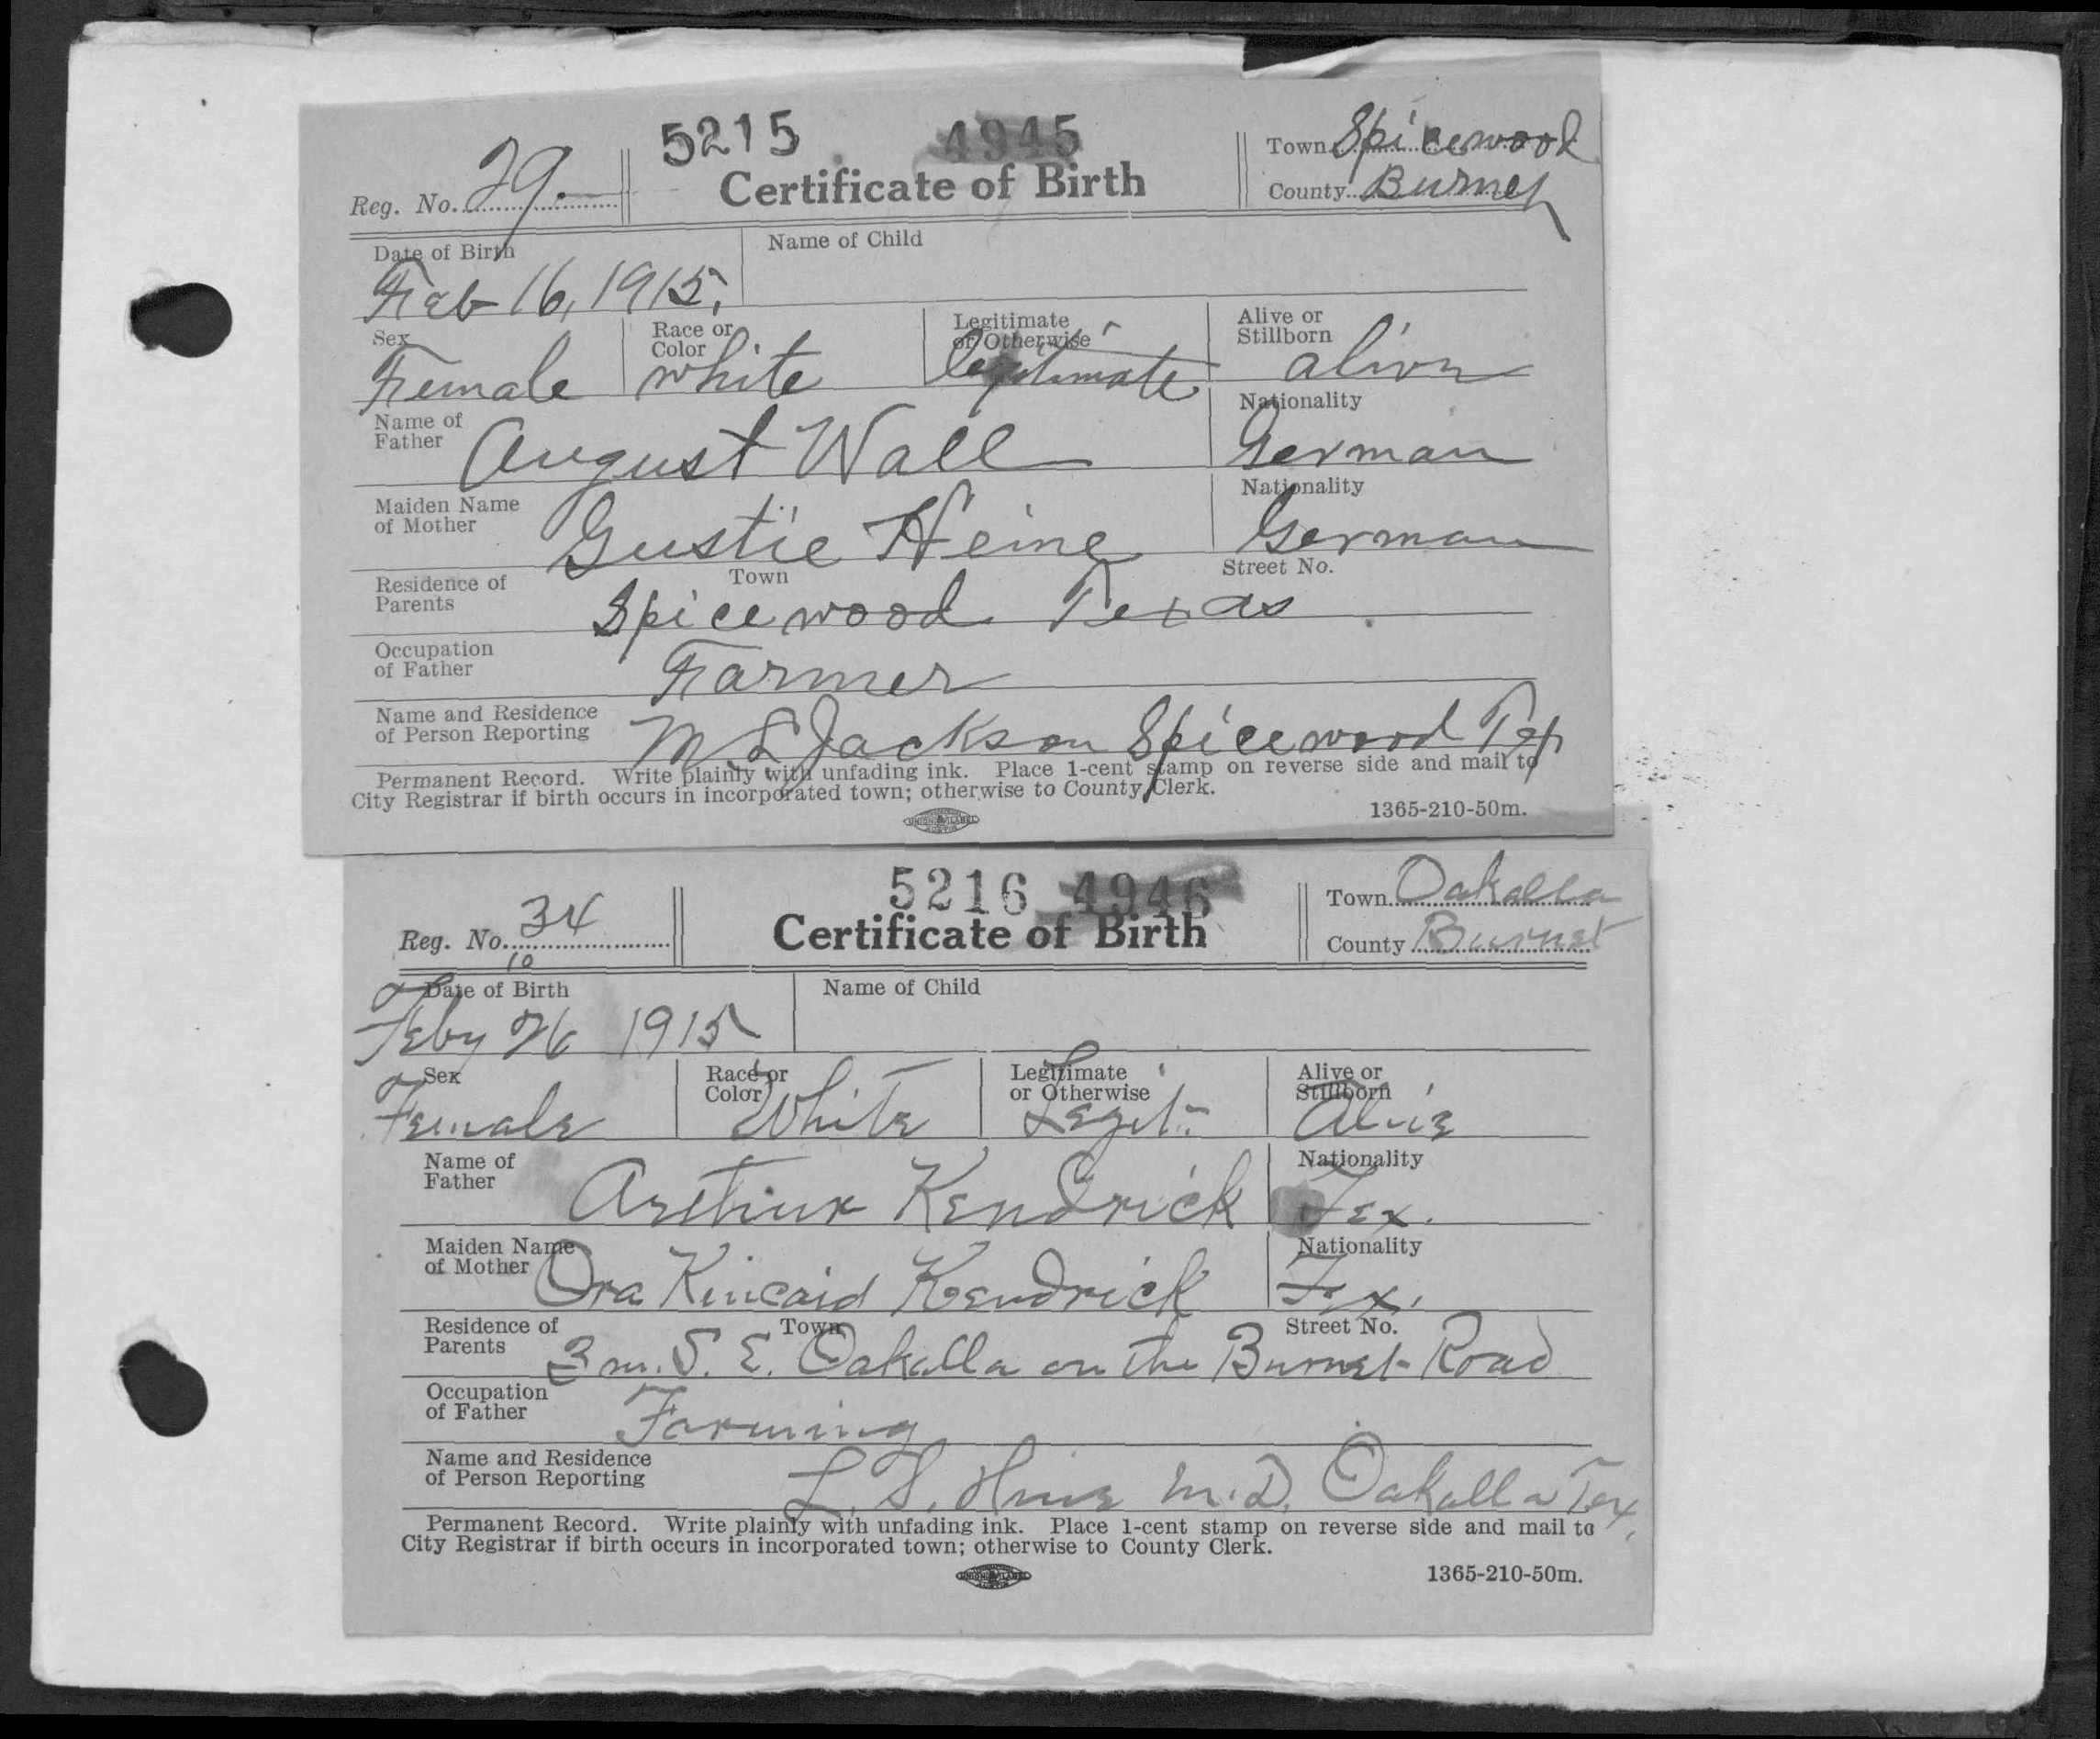 5215 4945
Reg. No. 29. Certificate of Birth Town Spicewood
County Burnet
Date of Birth Name of Child
Feb 16, 1915.
Sex Race or Color Legitimate or Otherwise Alive or Stillborn
Female white legitimate alive
Name of Father August Wall Nationality German
Maiden Name of Mother Gustie Heine Nationality German
Residence of Parents Town Street No.
Spicewood Texas
Occupation of Father Farmer
Name and Residence of Person Reporting M L Jackson Spicewood Tex
Permanent Record. Write plainly with unfading ink. Place 1-cent stamp on reverse side and mail to
City Registrar if birth occurs in incorporated town; otherwise to County Clerk.
1365-210-50m.
5216 4946
Reg. No. 34 Certificate of Birth Town Oakalla
10 County Burnet
Date of Birth Name of Child
Feby 26 1915
Sex Race or Color Legitimate or Otherwise Alive or Stillborn
Female White Legit. Alive
Name of Father Arthur Kendrick Nationality Tex.
Maiden Name of Mother Ora Kincaid Kendrick Nationality Tex.
Residence of Parents Town Street No.
3 m. S. E. Oakalla on the Burnet Road
Occupation of Father Farming
Name and Residence of Person Reporting L. M.D. Oakalla Tex.
Permanent Record. Write plainly with unfading ink. Place 1-cent stamp on reverse side and mail to
City Registrar if birth occurs in incorporated town; otherwise to County Clerk.
1365-210-50m.